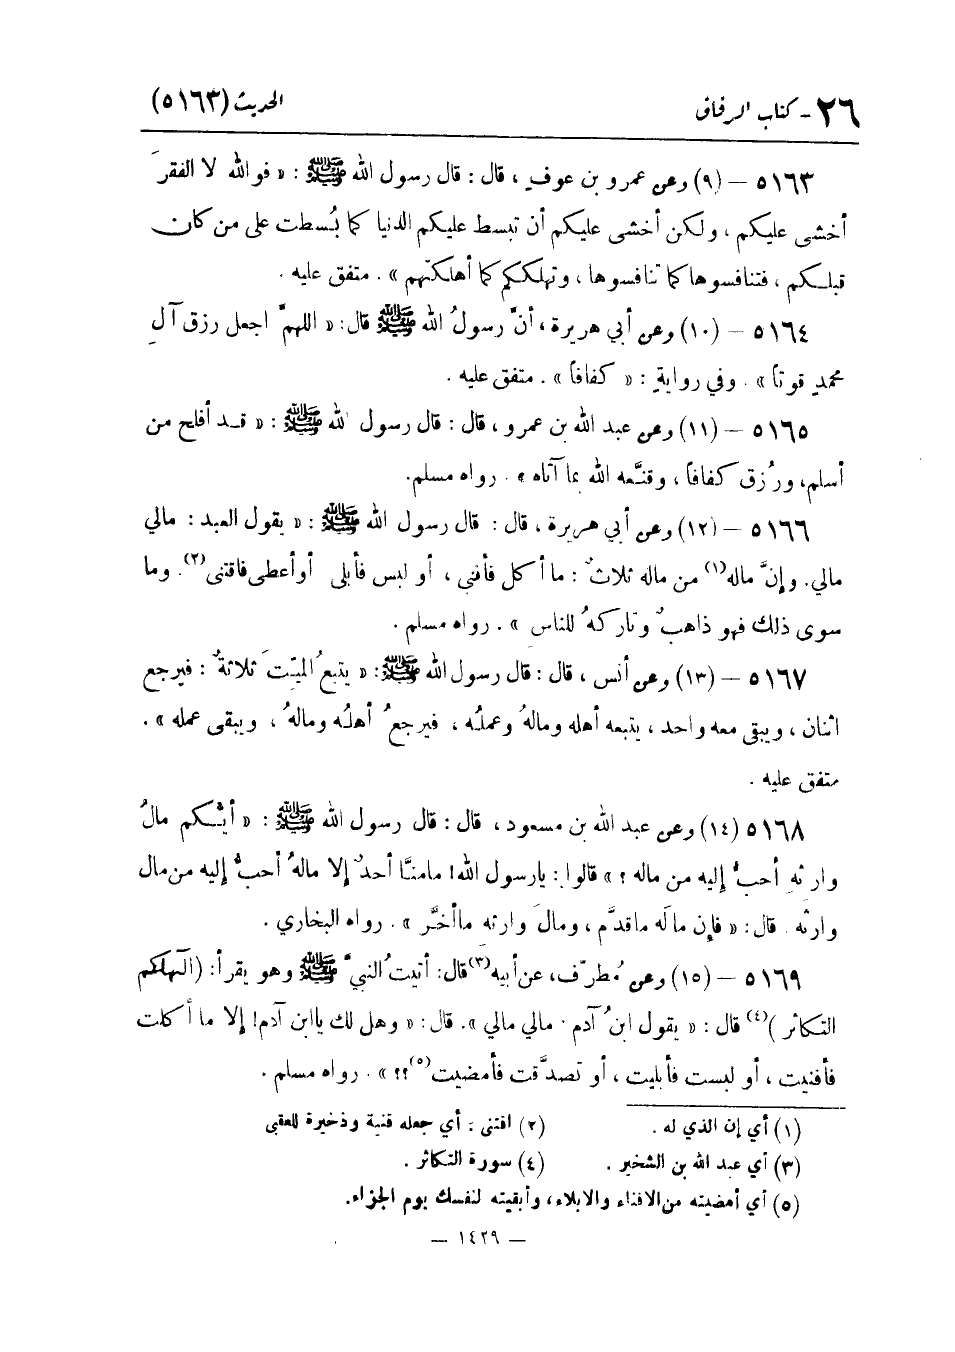 ٢٦ - كتاب الرقاق
الحديث (٥١٦٣)
٥١٦٣ – (٩) وعن عمرو بن عوف، قال: قال رسول الله ﷺ: « فوالله لا الفقرَ
أخشى عليكم، ولكن أخشى عليكم أن تبسط عليكم الدنيا كما بُسطت على من كان
قبلكم، فتنافسوها كما تنافسوها، وتهلككم كما أهلكتهم ». متفق عليه.
٥١٦٤ – (١٠) وعن أبي هريرة، أنَّ رسولُ الله ﷺ قال: « اللهمَّ اجعل رزق آلِ
محمدٍ قوتاً ». وفي روايةٍ: « كفافاً ». متفق عليه.
٥١٦٥ – (١١) وعن عبد الله بن عمرو، قال: قال رسول الله ﷺ: « قد أفلح من
أسلم، ورُزق كفافاً، وقنَّعه الله بما آتاه ». رواه مسلم.
٥١٦٦ – (١٢) وعن أبي هريرة، قال: قال رسول الله ﷺ: « يقول العبد: مالي
مالي. وإنَّ ماله(١) من ماله ثلاثٌ: ما أكل فأفنى، أو لبس فأبلى أو أعطى فاقتنى(٢). وما
سوى ذلك فهو ذاهبٌ وتاركهُ للناس ». رواه مسلم.
٥١٦٧ – (١٣) وعن أنس، قال: قال رسول الله ﷺ: « يتبعُ الميّتَ ثلاثةٌ: فيرجع
اثنان، ويبقى معه واحد، يتبعه أهله ومالهُ وعملُه، فيرجعُ أهلُه ومالهُ، ويبقى عمله ».
متفق عليه.
٥١٦٨ (١٤) وعن عبد الله بن مسعود، قال: قال رسول الله ﷺ: « أيُّكم مالُ
وارثهِ أحبُّ إليه من ماله؟ » قالوا: يارسول الله! مامنَّا أحدٌ إلا مالهُ أحبُّ إليه من مال
وارثه. قال: « فإن مالَه ماقدَّم، ومالَ وارثه ماأخَّر ». رواه البخاري.
٥١٦٩ – (١٥) وعن مُطرِّف، عن أبيه(٣) قال: أتيتُ النبيَّ ﷺ وهو يقرأ: (ألهاكم
التكاثر)(٤) قال: « يقول ابنُ آدم: مالي مالي ». قال: « وهل لك ياابن آدم! إلا ما أكلت
فأفنيت، أو لبست فأبليت، أو تصدَّقت فأمضيت(٥)؟؟ ». رواه مسلم.
(١) أي إن الذي له.
(٢) اقتنى: أي جعله قنية وذخيرة للعقبى
(٣) أي عبد الله بن الشخير.
(٤) سورة التكاثر.
(٥) أي أمضيته من الافناء والابلاء، وأبقيته لنفسك يوم الجزاء.
– ١٤٢٩ –